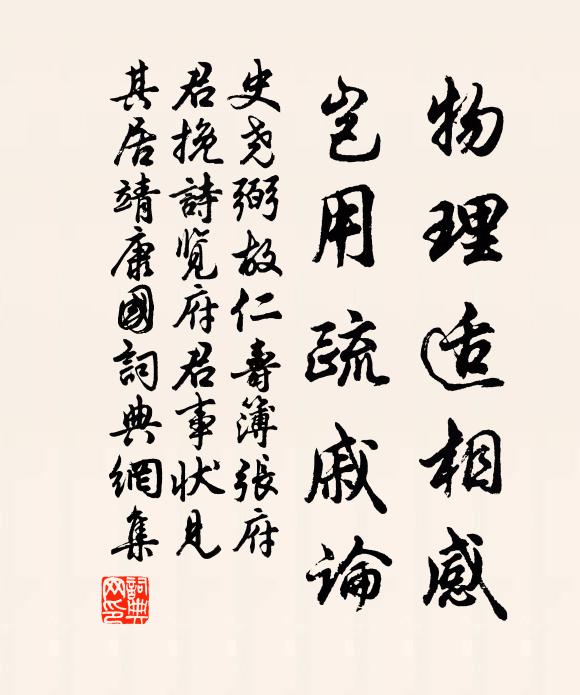 物理适相感
岂用疏戚論
史尧弼故仁壽簿張府
君挽詩覧府君事状見
其居靖康國詞典網集
詞典
网印